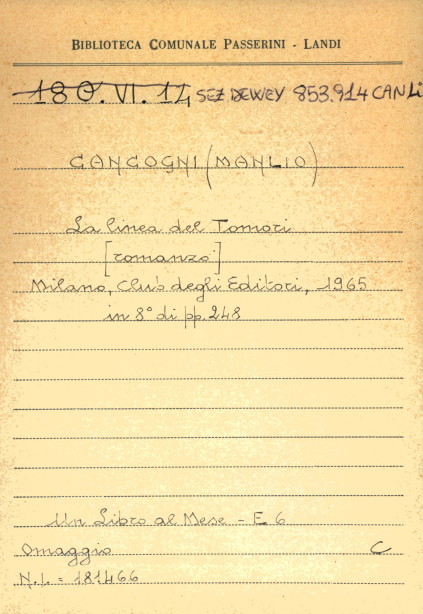 BIBLIOTECA COMUNALE PASSERINI - LANDI
180.VI.14 SEZ DEWEY 853.914 CAN Li
CANCOGNI (MANLIO)
La linea del Tomori
[romanzo]
Milano, Club degli Editori, 1965
in 8° di pp. 248
Un Libro al Mese - E 6
Omaggio C
N.I. = 181466